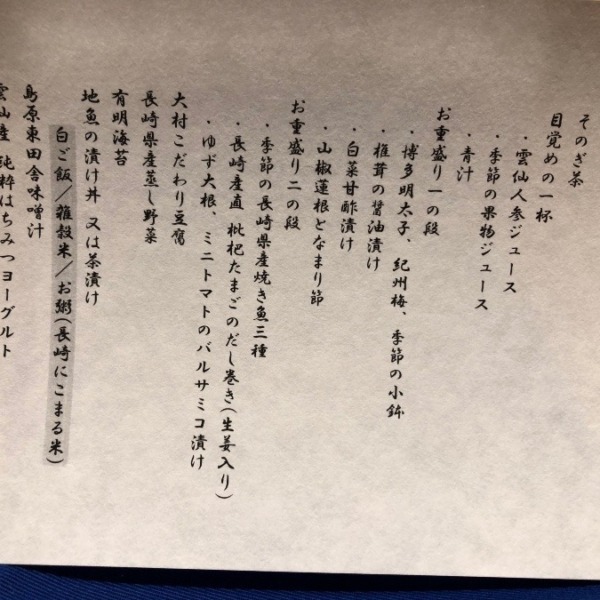 そのぎ茶
目覚めの一杯
・雲仙人参ジュース
・季節の果物ジュース
・青汁
お重盛り一の段
・博多明太子、紀州梅、季節の小鉢
・椎茸の醤油漬け
・白菜甘酢漬け
・山椒蓮根となまり節
お重盛り二の段
・季節の長崎県産焼き魚三種
・長崎産直 枇杷たまごのだし巻き(生姜入り)
・ゆず大根、ミニトマトのバルサミコ漬け
大村こだわり豆腐
長崎県産蒸し野菜
有明海苔
地魚の漬け丼 又は茶漬け
白ご飯/雑穀米/お粥(長崎にこまる米)
島原東田舎味噌汁
雲仙産 純粋はちみつヨーグルト